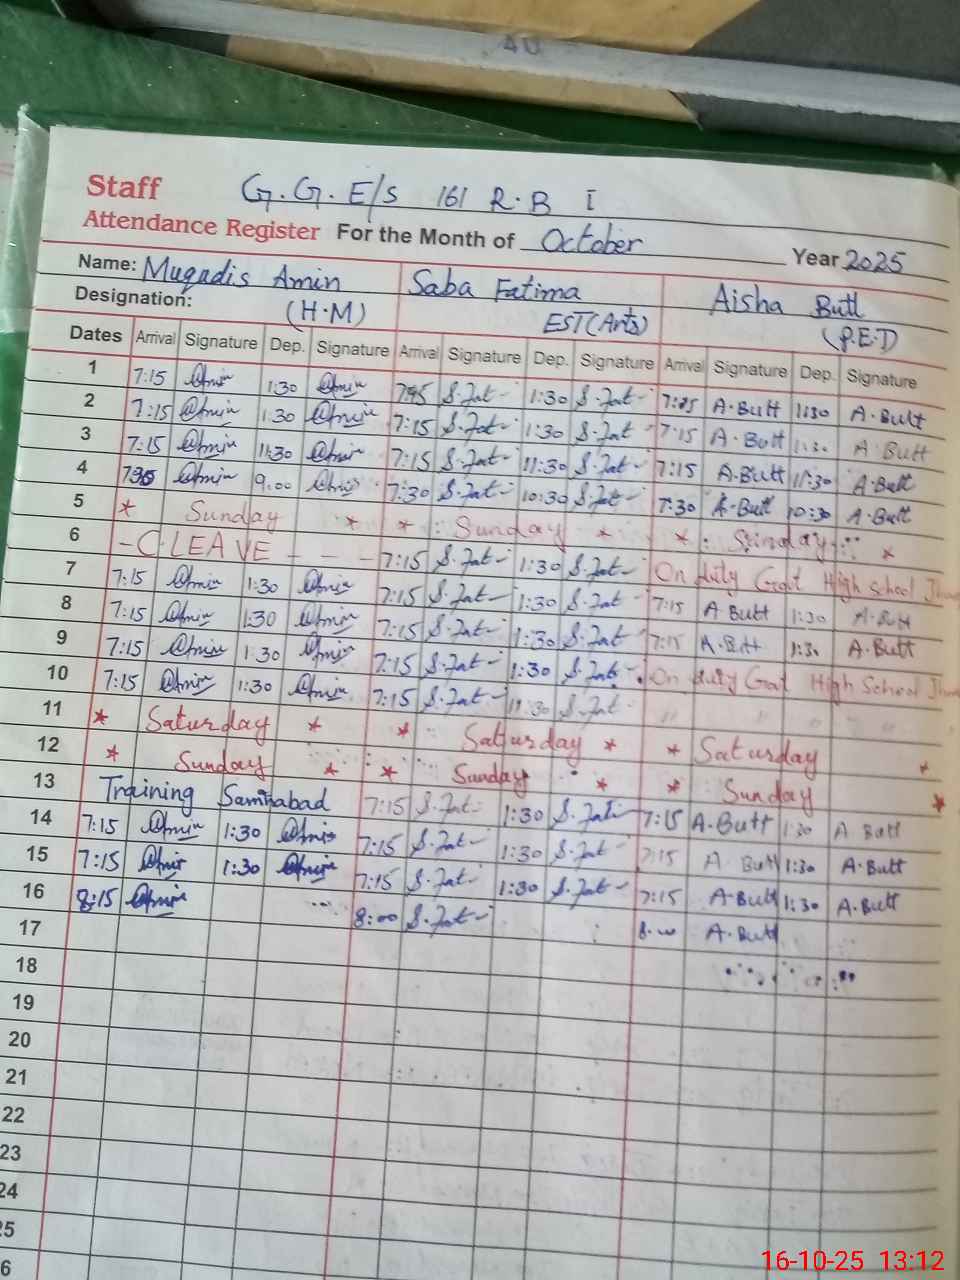 40
Staff G.G.E/S 161 R.B I
Attendance Register For the Month of October Year 2025
Name: Muqadis Amin Saba Fatima Aisha Butt
Designation: (H.M) EST(Arts) (P.E.T)
Dates Arrival Signature Dep. Signature Arrival Signature Dep. Signature Arrival Signature Dep. Signature
1 7:15 Amin 1:30 Amin S.Fat 1:30 S.Fat 7:15 A.Butt 1:30 A.Butt
2 7:15 Amin 1:30 Amin 7:15 S.Fat 1:30 S.Fat 7:15 A.Butt 1:30 A.Butt
3 7:15 Amin 11:30 Amin 7:15 S.Fat 11:30 S.Fat 7:15 A.Butt 11:30 A.Butt
4 Amin 9.00 Amin 7:30 S.Fat 10:30 S.Fat 7:30 A.Butt 10:30 A.Butt
5 * Sunday * * Sunday * * Sunday *
6 - C-LEAVE - - - 7:15 S.Fat 1:30 S.Fat On duty Govt High School
7 7:15 Amin 1:30 Amin 7:15 S.Fat 1:30 S.Fat 7:15 A Butt 1:30 A.Butt
8 7:15 Amin 1:30 Amin 7:15 S.Fat 1:30 S.Fat 7:15 A.Butt 1:30 A.Butt
9 7:15 Amin 1:30 Amin 7:15 S.Fat 1:30 S.Fat On duty Govt High School
10 7:15 Amin 1:30 Amin 7:15 S.Fat 11:30 S.Fat " " " "
11 * Saturday * * Saturday * * Saturday *
12 * Sunday * * Sunday * * Sunday *
13 Training Samnabad 7:15 S.Fat 1:30 S.Fat 7:15 A.Butt 1:30 A.Butt
14 7:15 Amin 1:30 Amin 7:15 S.Fat 1:30 S.Fat 7:15 A.Butt 1:30 A.Butt
15 7:15 Amin 1:30 Amin 7:15 S.Fat 1:30 S.Fat 7:15 A.Butt 1:30 A.Butt
16 8:15 Amin 8:00 S.Fat 8.00 A.Butt
17
18
19
20
21
22
23
24
25
16-10-25 13:12